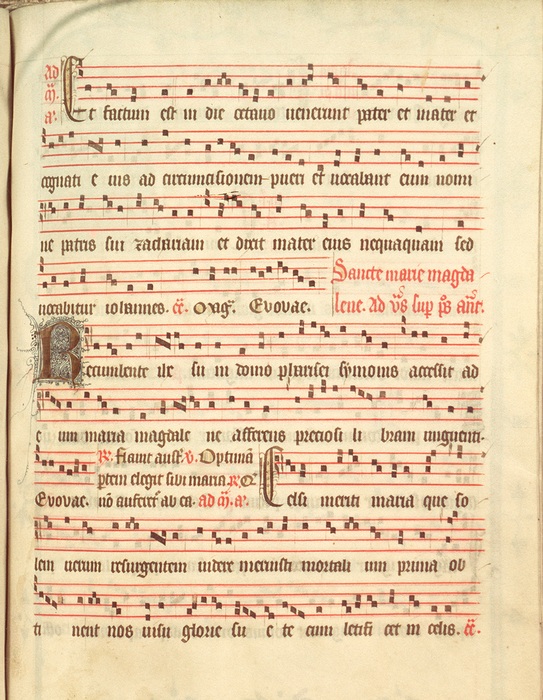 ad
Et factum est in die octavo venerunt pater et mater et
cognati e ius ad circumcisionem pueri et vocabant eum nomi
ne patris sui zachariam et dixit mater eius nequaquam sed
vocabitur iohannes. Evovae. Sancte marie magda
lene. Ad sup ps ant.
Recumbente ihe su in domo pharisei symonis accessit ad
e um maria magdale ne afferens preciosi li bram unguenti.
Fiant aus v. Optimā
ptem elegit sibi maria
Evovae. nō auferet ab ea. ad Celsi meriti maria que so
lem verum resurgentem videre meruisti mortali um prima ob
ti nent nos visu glorie su e te cum letifi cet in celis.